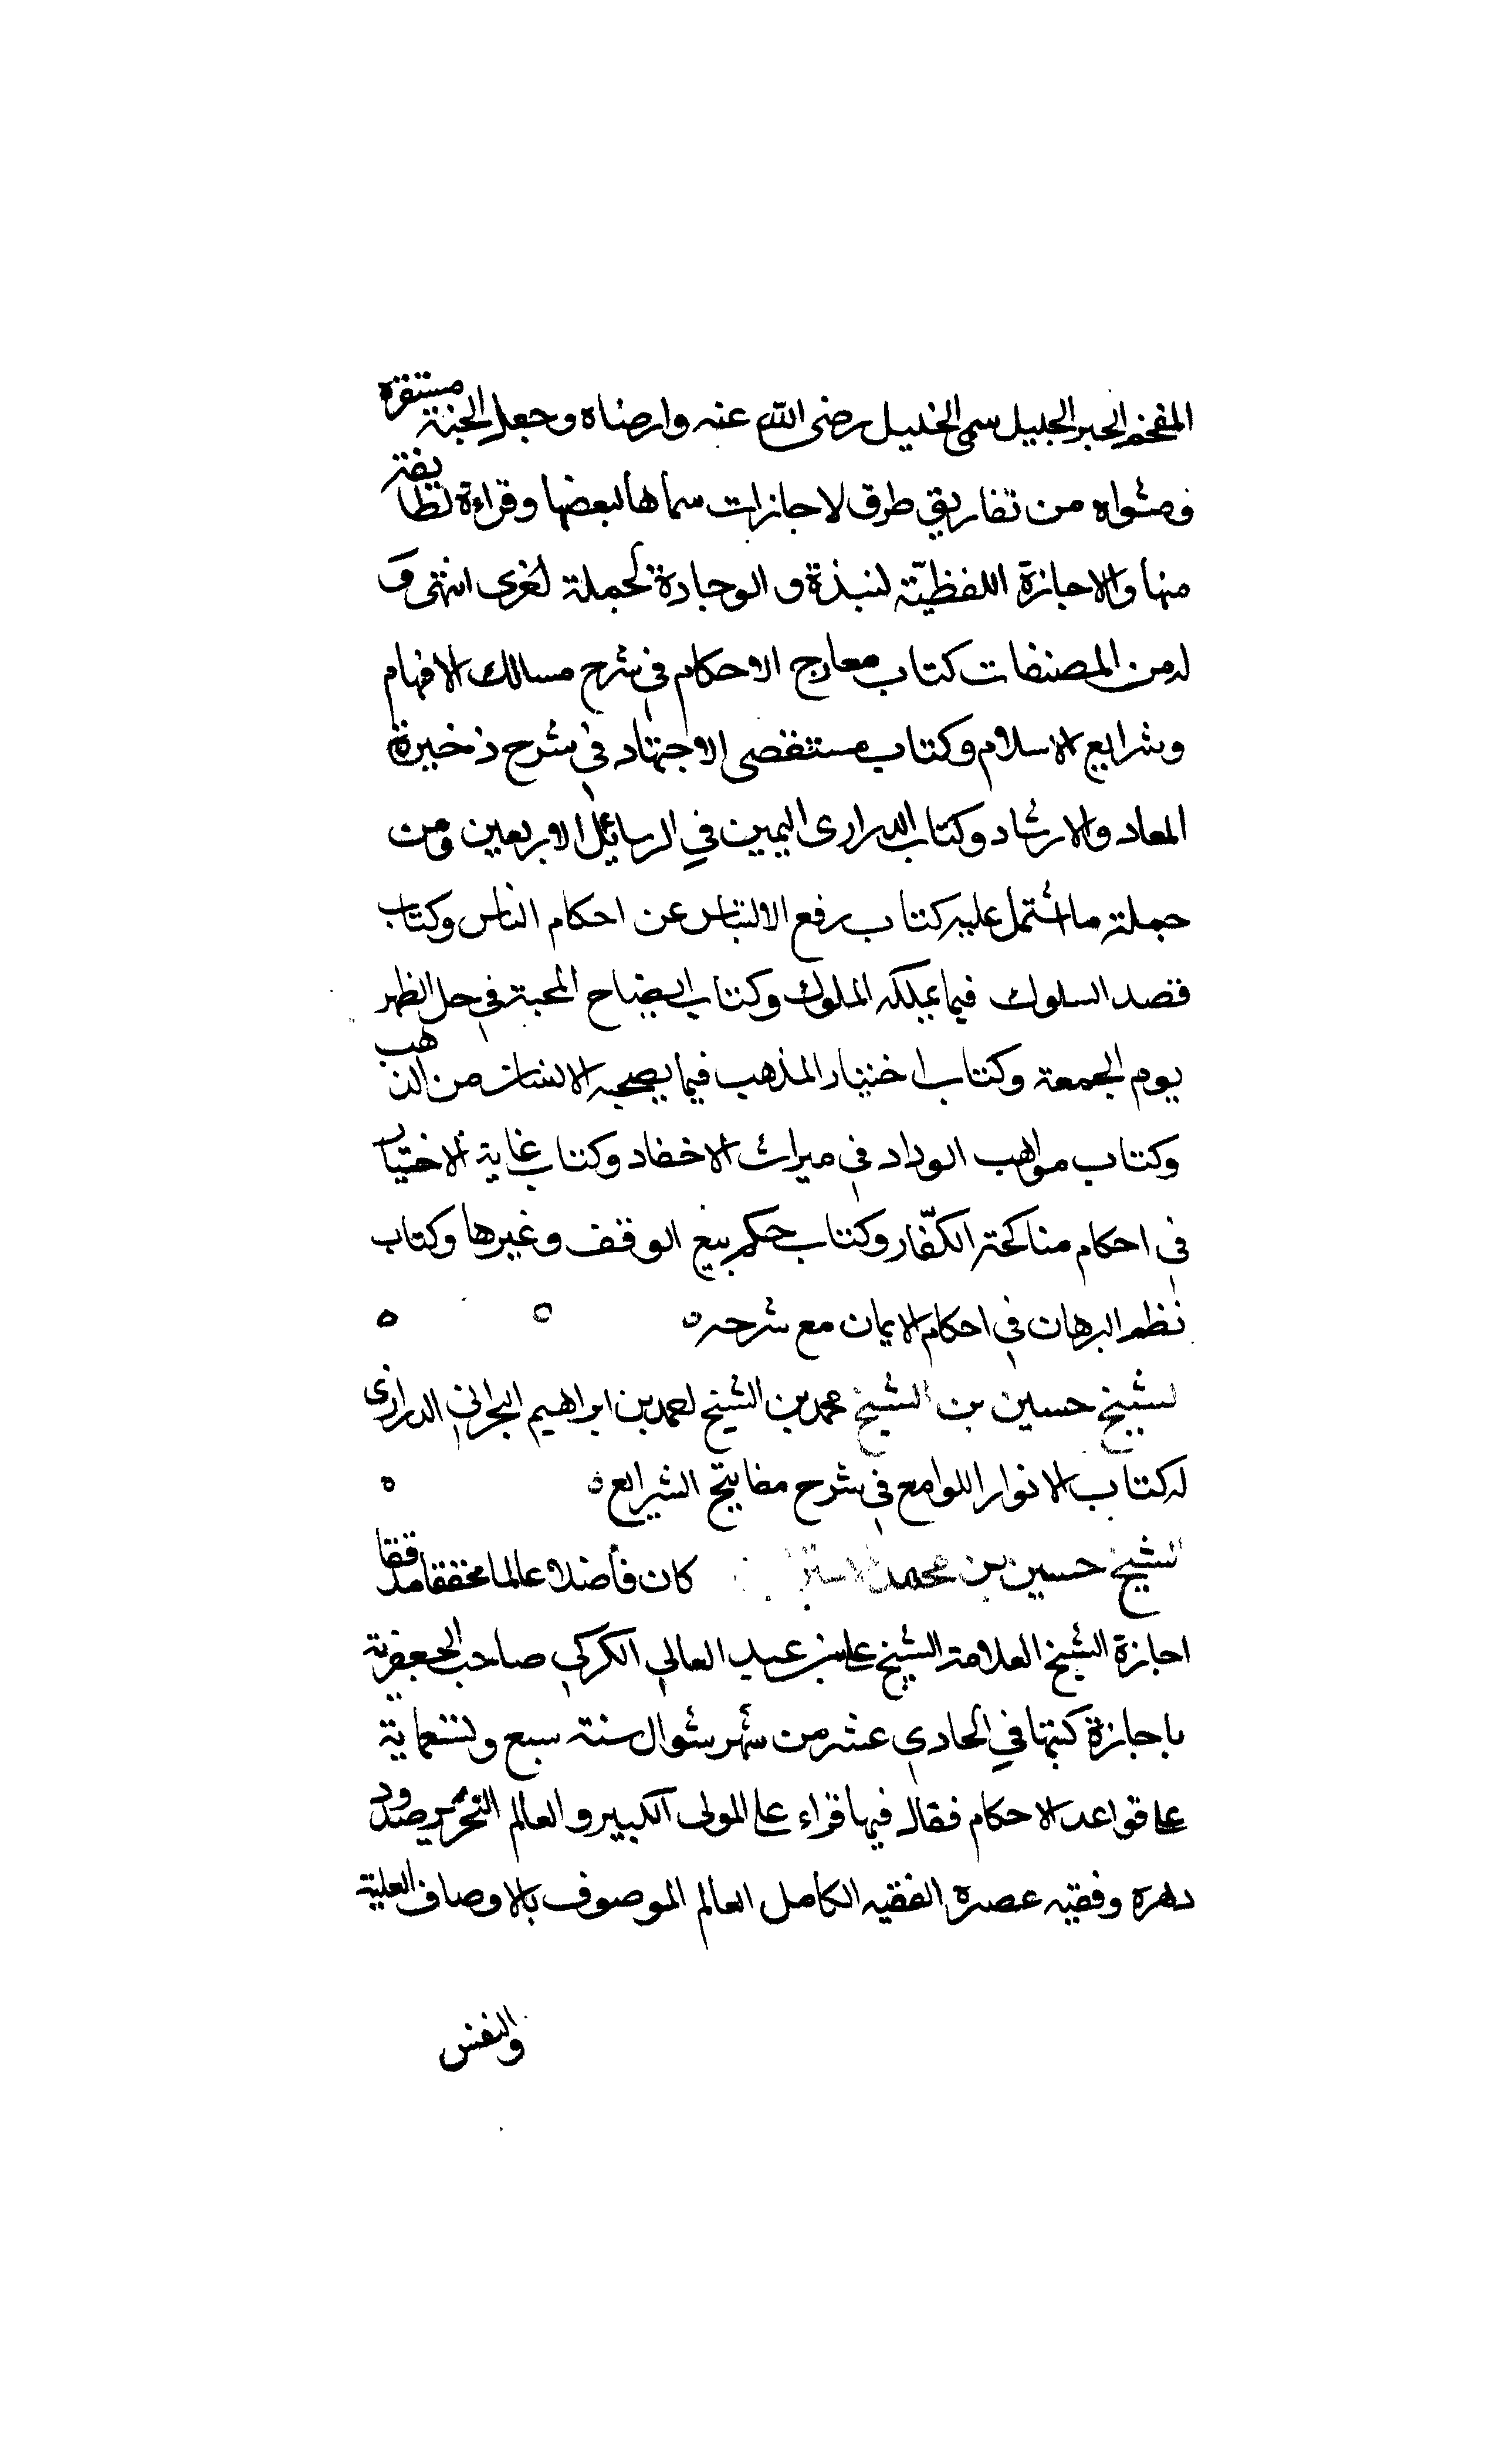 المفخم الحبر الجليل سمي الخليل رضى الله عنه وارضاه وجعل الجنة مستقره
ومثواه من تفاريق طرق الاجازات سماها لبعضها وقراءة لطايفة
منها والاجازة اللفظيّة لنبذة والوجادة لجملة اخرى انتهى و
له من المصنفات كتاب معارج الاحكام في شرح مسالك الافهام
وشرايع الاسلام وكتاب مستقصى الاجتهاد في شرح ذخيرة
المعاد والارشاد وكتاب الدرارى اليمين في الرسائل الاربعين ومن
جملة ما اشتمل عليه كتاب رفع الالتباس عن احكام الناس وكتاب
قصد السلوك فيما يملكه المملوك وكتاب ايضاح المحبة في حل الظهر
يوم الجمعة وكتاب اختيار المذهب فيما يصحبه الانسان من الذهب
وكتاب مواهب الوداد في ميراث الاحفاد وكتاب غاية الاختيار
في احكام مناكحة الكفّار وكتاب حكم بيع الوقف وغيرها وكتاب
نظم البرهان في احكام الايمان مع شرحه
الشيخ حسين بن الشيخ محمد بن الشيخ احمد بن ابراهيم البحراني الدرازى
له كتاب الانوار اللوامع في شرح مفاتيح الشرايع
الشيخ حسين بن محمد كان فاضلا عالما محققا مدققا
اجازة الشيخ العلامة الشيخ على بن عبد العالي الكركي صاحب الجعفرية
باجازة كتبها في الحادي عشر من شهر شوال سنة سبع وتسعماية
على قواعد الاحكام فقال فيها قراء على المولى الكبير والعالم النحرير صدوو
دهره وفقيه عصره الفقيه الكامل العالم الموصوف بالاوصاف العلية
والنفس